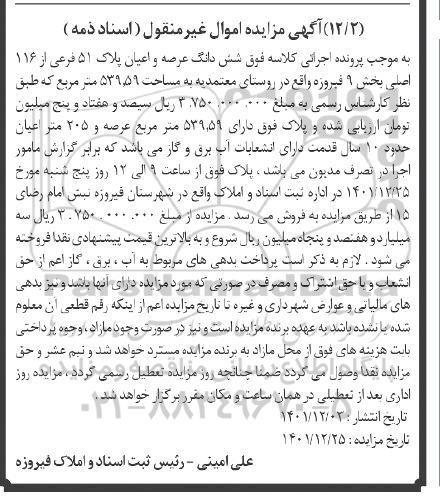 (۱۲/۲) آگهی مزایده اموال غیرمنقول (اسناد ذمه)
به موجب پرونده اجرائی کلاسه فوق شش دانگ عرصه و اعیان پلاک ۵۱ فرعی از ۱۱۶
اصلی بخش ۹ فیروزه واقع در روستای معتمدیه به مساحت ۵۳۹,۵۹ متر مربع که طبق
نظر کارشناس رسمی به مبلغ ۳.۷۵۰.۰۰۰.۰۰۰ ریال سیصد و هفتاد و پنج میلیون
تومان ارزیابی شده و پلاک فوق دارای ۵۳۹,۵۹ متر مربع عرصه و ۲۰۵ متر اعیان
حدود ۱۰ سال قدمت دارای انشعابات آب برق و گاز می باشد که برابر گزارش مامور
اجرا در تصرف مدیون می باشد ، پلاک فوق از ساعت ۹ الی ۱۲ روز پنج شنبه مورخ
۱۴۰۱/۱۲/۲۵ در اداره ثبت اسناد و املاک واقع در شهرستان فیروزه نبش امام رضای
۱۵ از طریق مزایده به فروش می رسد . مزایده از مبلغ ۳.۷۵۰.۰۰۰.۰۰۰ ریال سه
میلیارد و هفتصد و پنجاه میلیون ریال شروع و به بالاترین قیمت پیشنهادی نقدا فروخته
می شود . لازم به ذکر است پرداخت بدهی های مربوط به آب ، برق ، گاز اعم از حق
انشعاب و یا حق اشتراک و مصرف در صورتی که مورد مزایده دارای آنها باشد و نیز بدهی
های مالیاتی و عوارض شهرداری و غیره تا تاریخ مزایده اعم از اینکه رقم قطعی آن معلوم
شده یا نشده باشد به عهده برنده مزایده است و نیز در صورت وجود مازاد ، وجوه پرداختی
بابت هزینه های فوق از محل مازاد به برنده مزایده مسترد خواهد شد و نیم عشر و حق
مزایده نقدا وصول می گردد ضمنا چنانچه روز مزایده تعطیل رسمی گردد ، مزایده روز
اداری بعد از تعطیلی در همان ساعت و مکان مقرر برگزار خواهد شد .
تاریخ انتشار : ۱۴۰۱/۱۲/۰۲
تاریخ مزایده : ۱۴۰۱/۱۲/۲۵
علی امینی - رئیس ثبت اسناد و املاک فیروزه